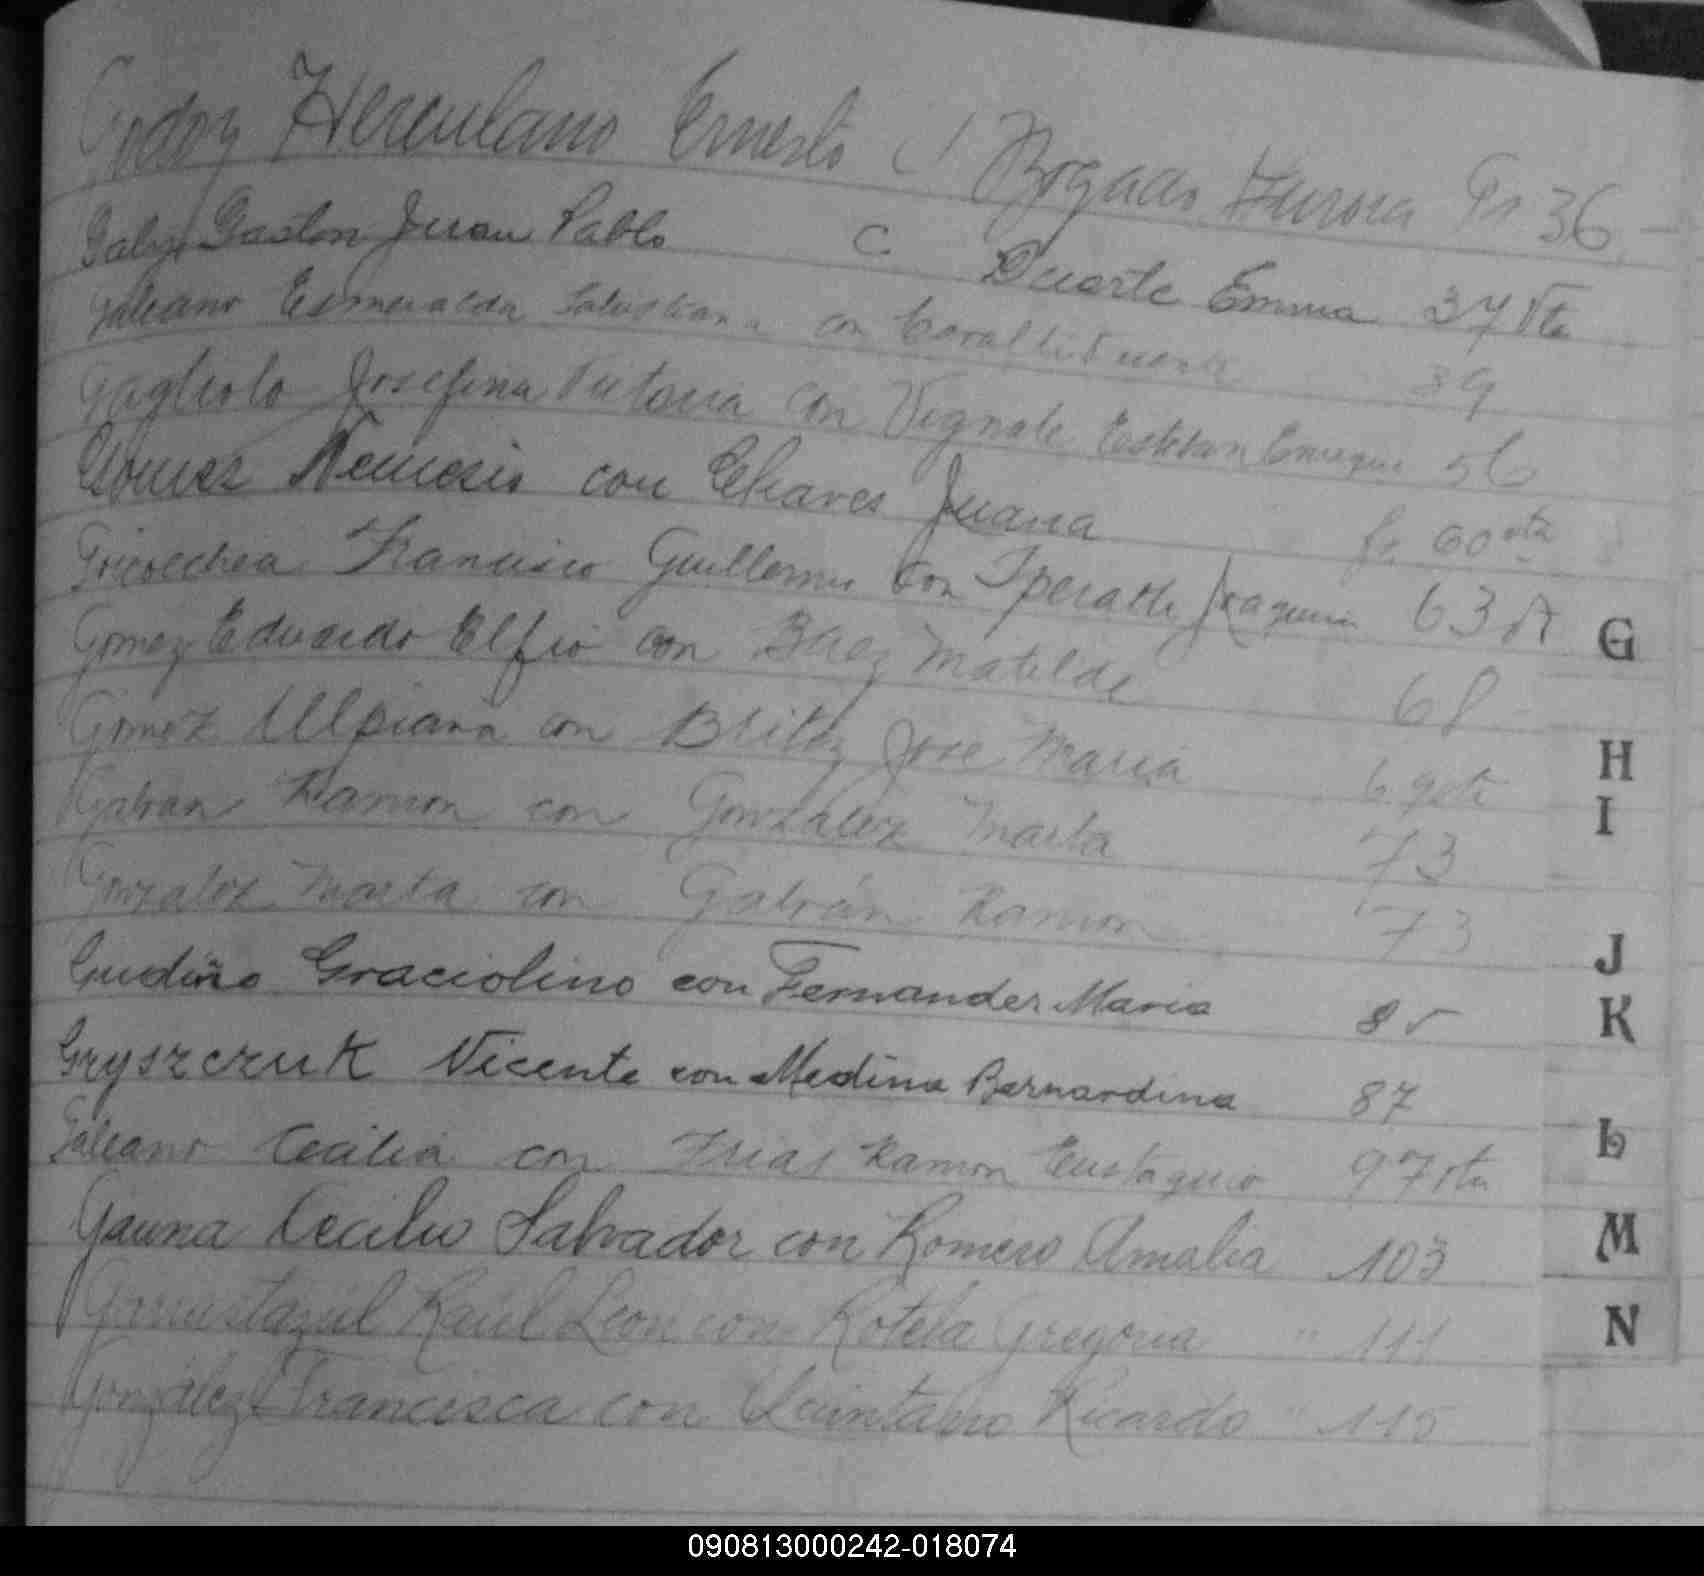 Godoy Herculano Ernesto c/ Bogado Aurora Fs 36
Galy Gaston Juan Pablo c Duarte Emma 37 Vta
Galeano Esmeralda Salustiana con 39
Gagliolo Josefina Victoria con Vignale Esteban Enrique 56
Gomez Nemesio con Chaves Juana fs 60 vta
Goicoechea Francisco Guillermo con Joaquina 63 vt
Gomez Eduardo Elfio con Baez Matilde 68
Gomez Ulpiana con Britez Jose Maria 69 vta
Galvan Ramon con Gonzalez Marta 73
Gonzalez Marta con Galván Ramon 73
Gudiño Graciolino con Fernandez Maria 85
Gryszczuk Vicente con Medina Bernardina 87
Galeano Cecilia con Frias Ramon Eustaquio 97 vta
Gauna Cecilio Salvador con Romero Amalia 103
Raúl Leon con Rotela Gregoria " 111
González Francisca con Quintano Ricardo " 115
G
H
I
J
K
L
M
N
090813000242-018074